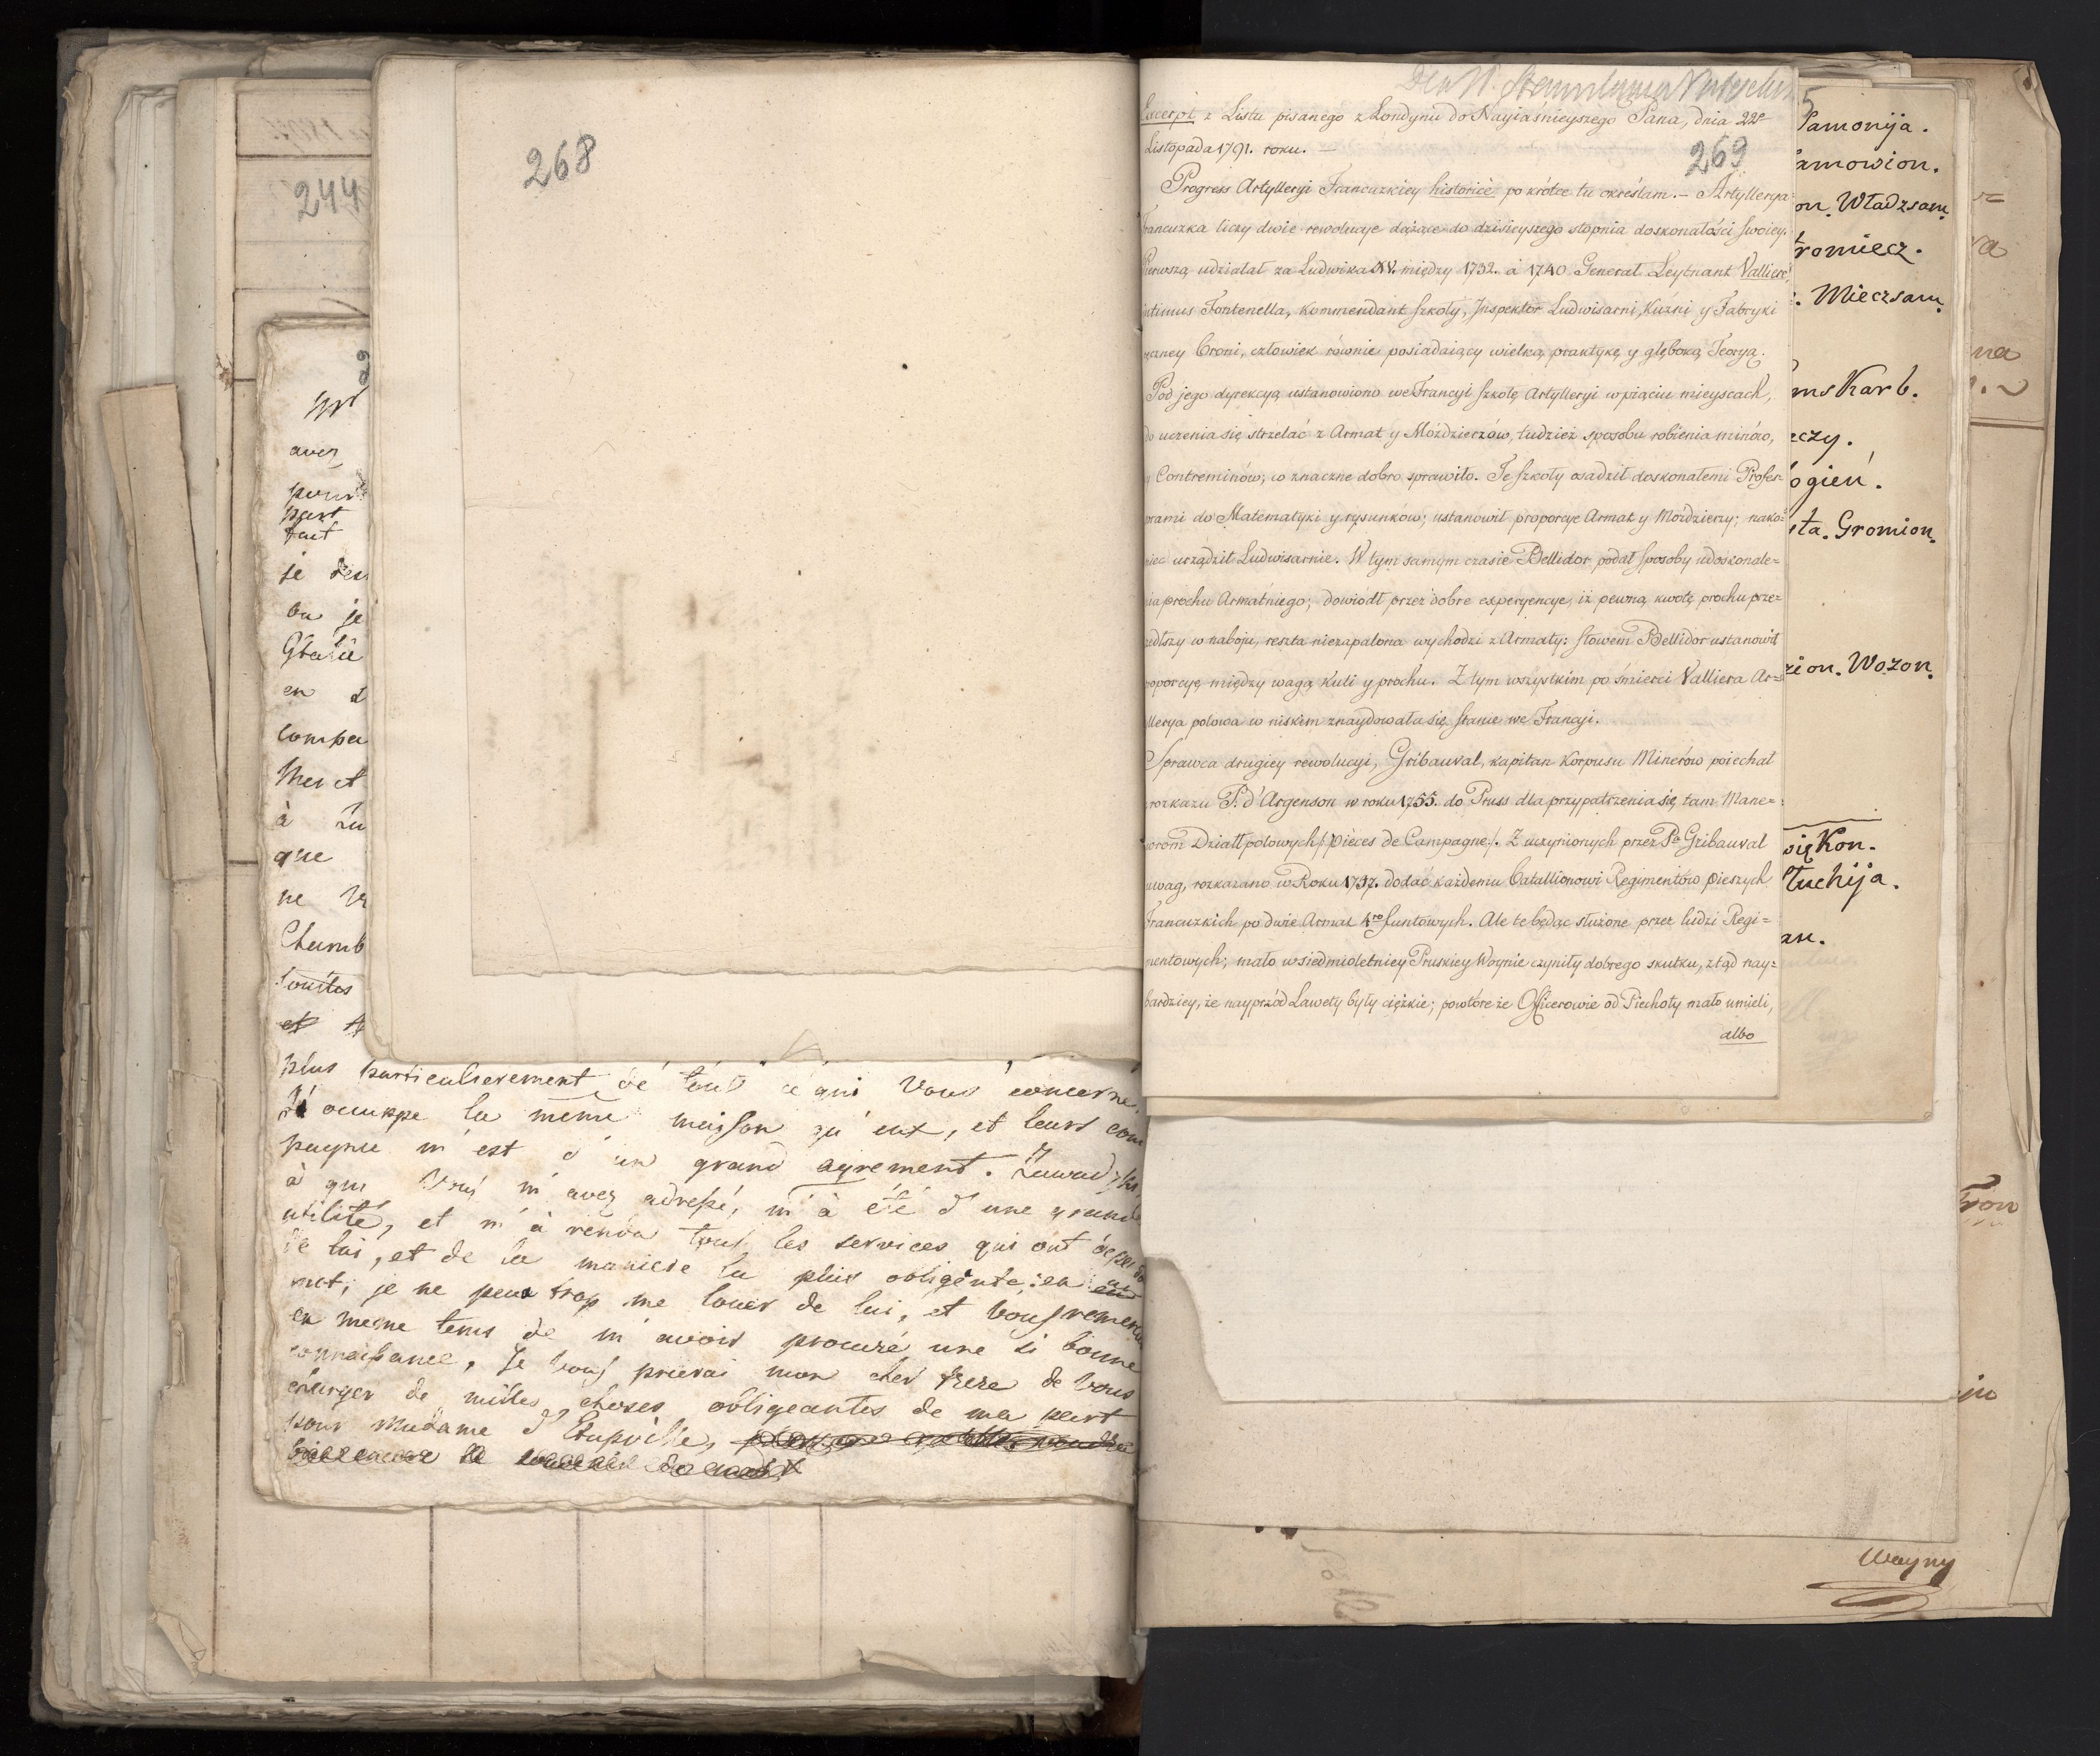 244
268
avez
part
tout
je
ou je
en
compa
à
que
ne
plus particulierement de tout ce qui vous concerne,
J'occuppe la même maison qu'eux, et leurs com
pagnie m'est d'un grand agrement.
à qui Vous m'avez adressé, m'à été d'une grande
utilité, et m'à rendu tous les services qui ont
de lui, et de la maniere la plus obligente: en un
mot, je ne peux trop me louer de lui, et Vous remerci
en meme tems de m'avoir procuré une si bonne
connaissance, Je Vous prierai mon cher frere de Vous
charger de milles choses obligeantes de ma part
pour Madame
Excerpt z Listu pisanego z Londynu do Nayiaśnieyszego Pana, dnia 22º
Listopada 1791. roku. —
269
Progress Artylleryi Francuzkiey historicè po krótce tu określam. — Artyllerya
Francuzka liczy dwie rewolucye dążące do dzisieyszego stopnia doskonałości swoiey.
Pierwszą udziałał za Ludwika XV. między 1732. a 1740 Generał Leytnant Valliere,
intimus Fontenella, Kommendant szkoły, Inspektor Ludwisarni, Kuźni y Fabryki
ręczney broni, człowiek równie posiadaiący wielką praktykę y głęboką Teoryą.
Pod jego dyrekcyą ustanowiono we Francyi szkołę Artylleryi w piąciu mieyscach,
do uczenia się strzelać z Armat y Moździerzów, tudzież sposobu robienia minów,
y Contreminów; co znaczne dobro sprawiło. Te szkoły osadził doskonałemi Profes=
orami do Matematyki y rysunków; ustanowił proporcye Armat y Moździerzy; nako=
niec urządził Ludwisarnie. W tym samym czasie Bellidor podał sposoby udoskonale=
nia prochu Armatniego; dowiódł przez dobre experyencye, iż pewną kwotę prochu prze=
szedłszy w naboju, reszta niezapalona wychodzi z Armaty: słowem Bellidor ustanowił
proporcyę między wagą kuli y prochu. Z tym wszystkim po śmierci Valliera Ar=
tyllerya polowa w niskim znaydowała się stanie we Francyi.
Sprawca drugiey rewolucyi, Gribauval, kapitan Korpusu Minerów poiechał
z rozkazu P. d'Argenson w roku 1755. do Pruss dla przypatrzenia się tam Mane=
wrom Dziatt polowych /: pièces de Campagne :/. Z uczynionych przez Pa Gribauval
uwag, rozkazano w Roku 1757. dodać każdemu batallionowi Regimentów pieszych
Francuzkich po dwie Armat 4ro funtowych. Ale te będąc służone przez ludzi Regi=
mentowych; mało w siedmioletniey Pruskiey Woynie czyniły dobrego skutku, ztąd nay=
bardziey, że nayprzód Lawety były ciężkie; powtóre że Officerowie od Piechoty mało umieli,
albo
5
Samonija.
amowion.
on. Władzsam.
romiecz.
. Mieczsam.
ms Karb.
eczy.
ogień.
sta. Gromion.
zion. Wozon.
się Kon.
Tuchija.
an.